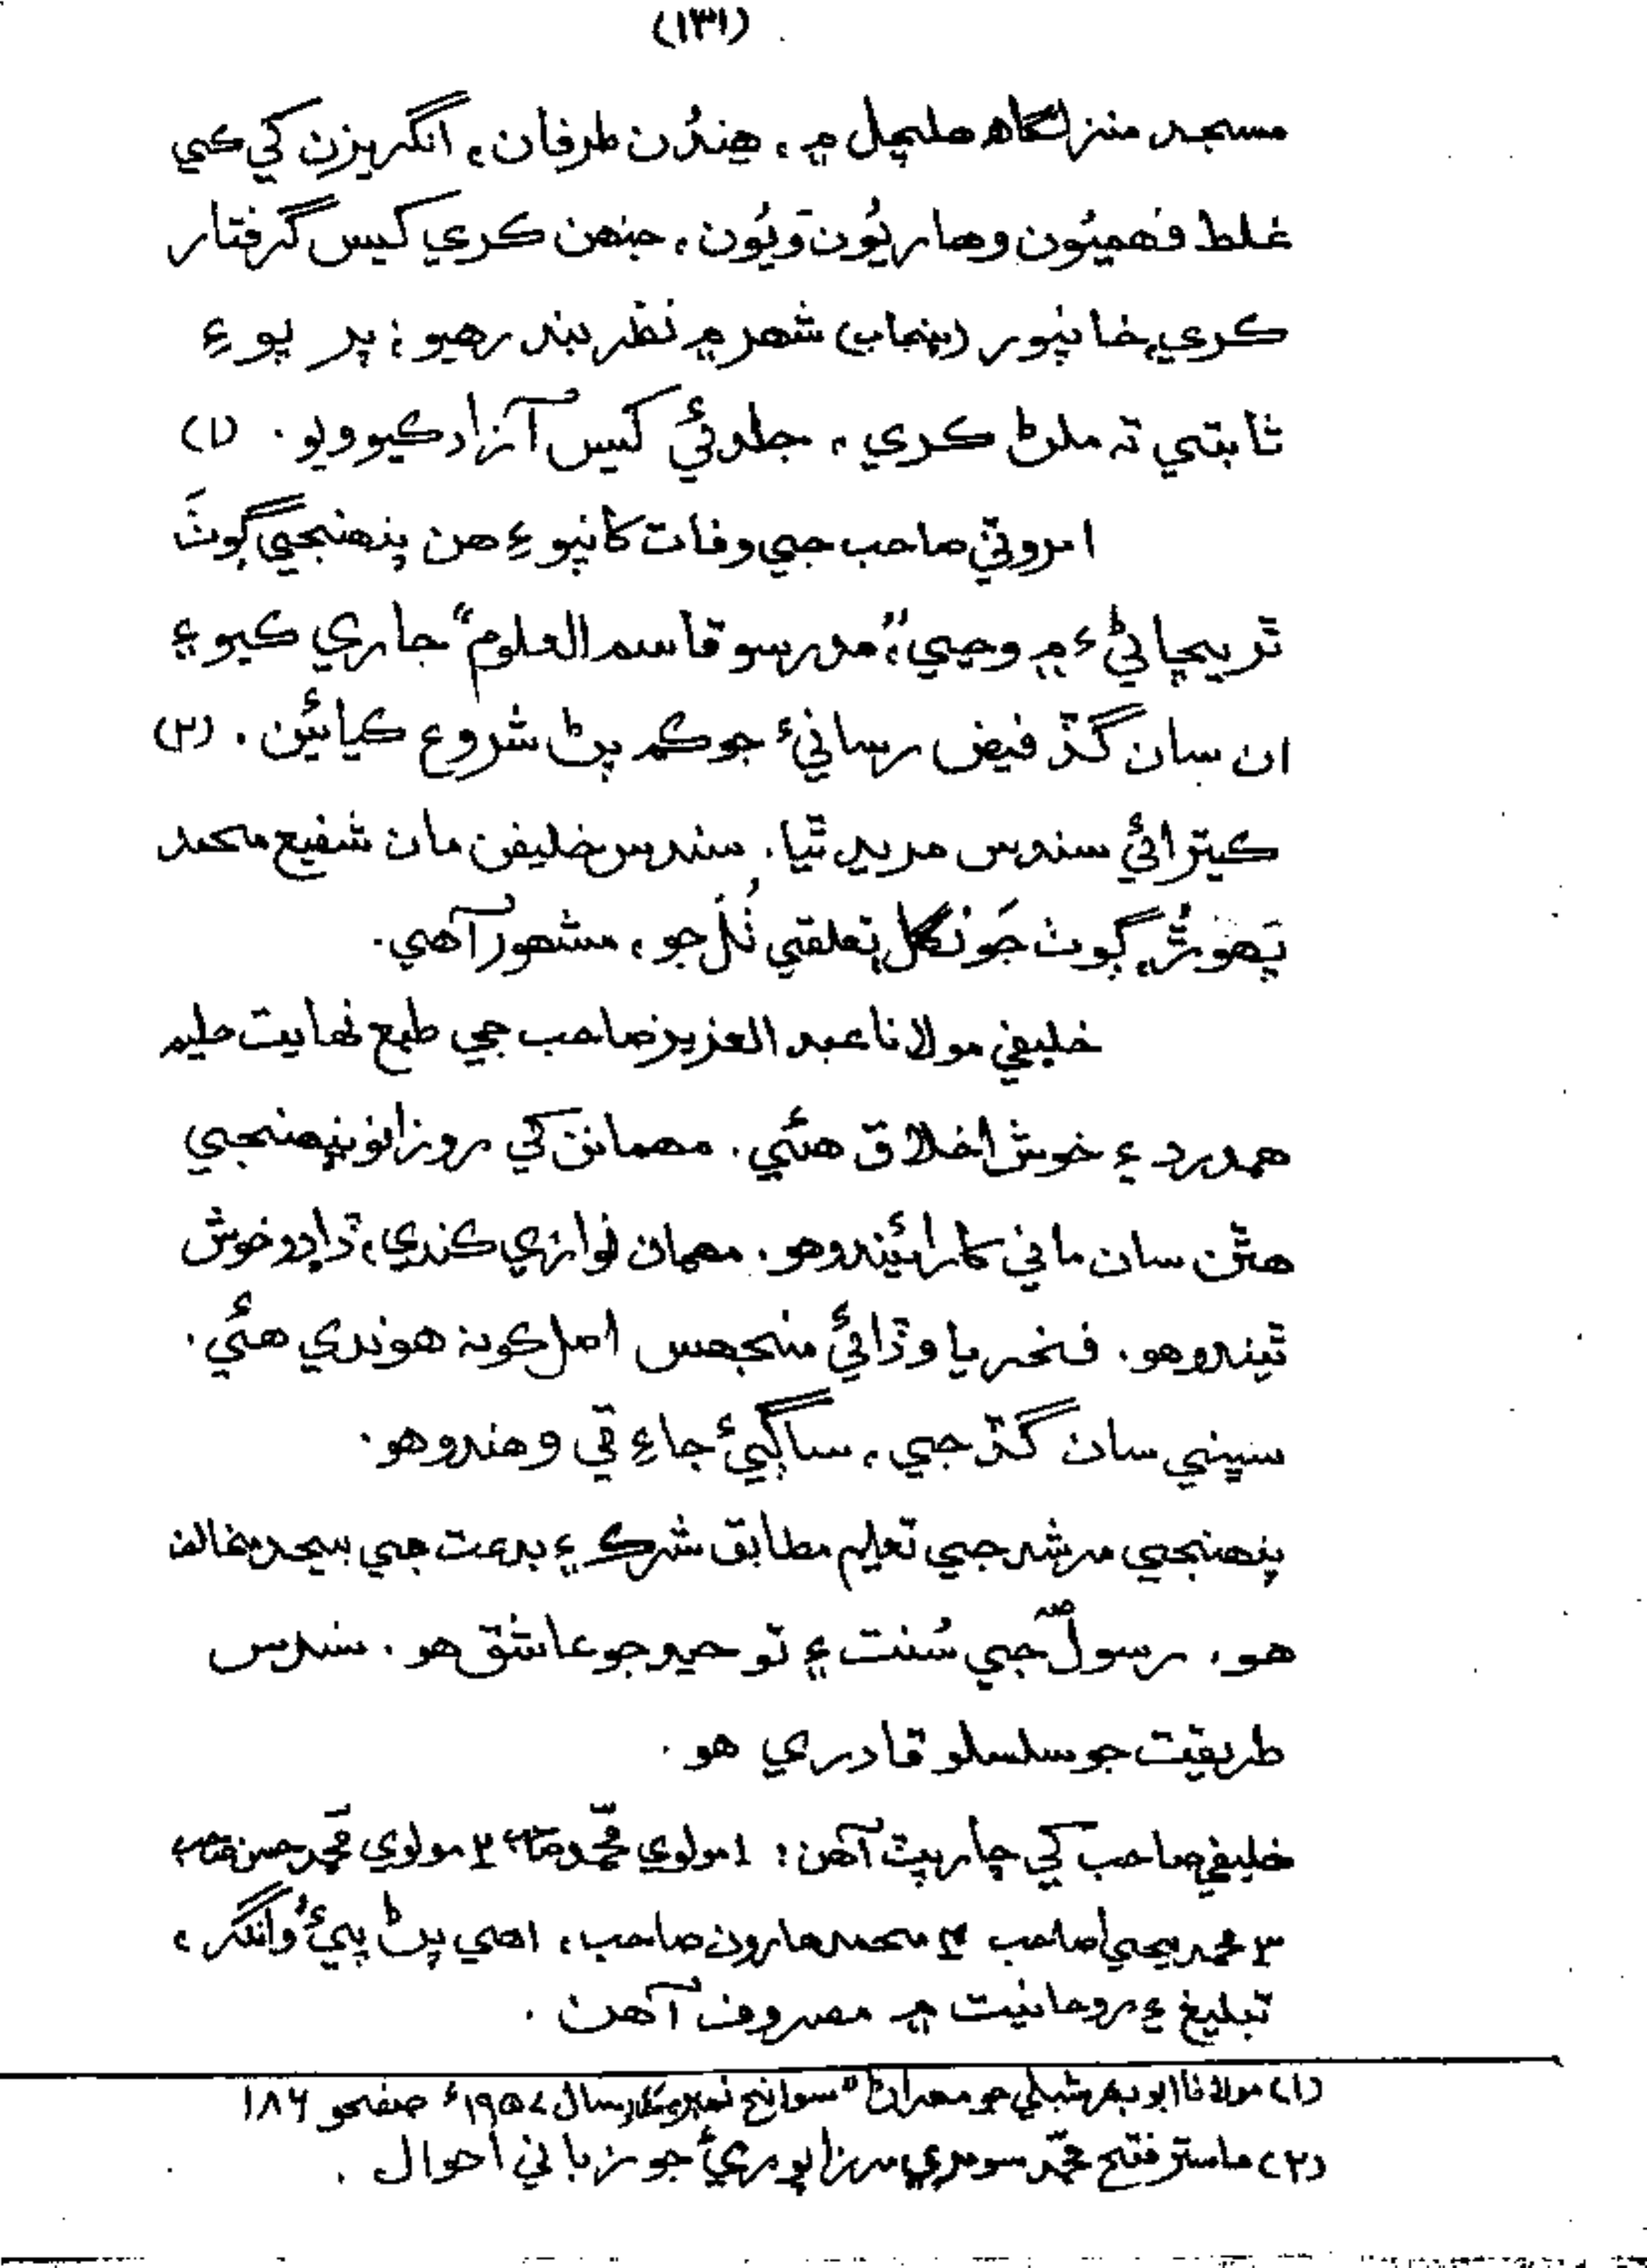 (١٣١)
مسجد منزلگاھ هلچل ۾، هِندُن طرفان، انگريزن کي ڪي
غلط فهميُون وهاريُون وَيُون، جنهن ڪري کيس گرفتار
ڪري، خانپور (پنجاب) شهر ۾ نظر بند رهيو؛ پر پوءِ
ثابتي نہ ملڻ ڪري، جلدئي کيس آزاد ڪيو ويو. (١)
امروٽي صاحب جي وفات کانپوءِ هن پنهنجي ڳوٺَ
ٿريچاڻيءَ ۾ وڃي، ”مدرسو قاسم العلوم“ جاري ڪيو ۽
ان سان گڏ فيض رسانيءَ جو ڪم پڻ شروع ڪيائين. (٢)
ڪيترائي سندس مريد ٿيا. سندس خليفن مان شفيع محمد
پَهوَڙ، ڳوٺ جَونگل، تعلقي ٺُلَ جو، مشهور آهي.
خليفي مولانا عبد العزيز صاحب جي طبع نهايت حليم
همدرد ۽ خوش اخلاق هئي. مهمانن کي روزانو پنهنجي
هٿن سان ماني کارائيندو هو. مهمان نوازي ڪندي، ڏاڍو خوش
ٿيندو هو. فخر يا وڏائي منجهس اصل ڪونہ هوندي هئي.
سڀني سان گڏجي، ساڳيءَ جاءِ تي وهندو هو.
پنهنجي مرشد جي تعليم مطابق شرڪ ۽ بدعت جي بيحد مخالف
هو، رسولؐ جي سُنت ۽ توحيد جو عاشق هو. سندس
طريقيت جو سلسلو قادري هو.
خليفي صاحب کي چار پٽ آهن: ١ مولوي محمّد صاحب ٢ مولوي محمّد حسن صاحب
٣ محمد يحيٰ صاحب ٤ محمد هارون صاحب، اهي پڻ پيءُ وانگر،
تبليغ ۽ روحانيت ۾ مصروف آهن.
(١) مولانا ابوبڪر شبلي جو مهراڻ ”سوانح نمبر سال ١٩٥٧ع صفحو ١٨٦
(٢) ماستر فتح محمّد سومري مرزاپوريءَ جو زباني احوال.